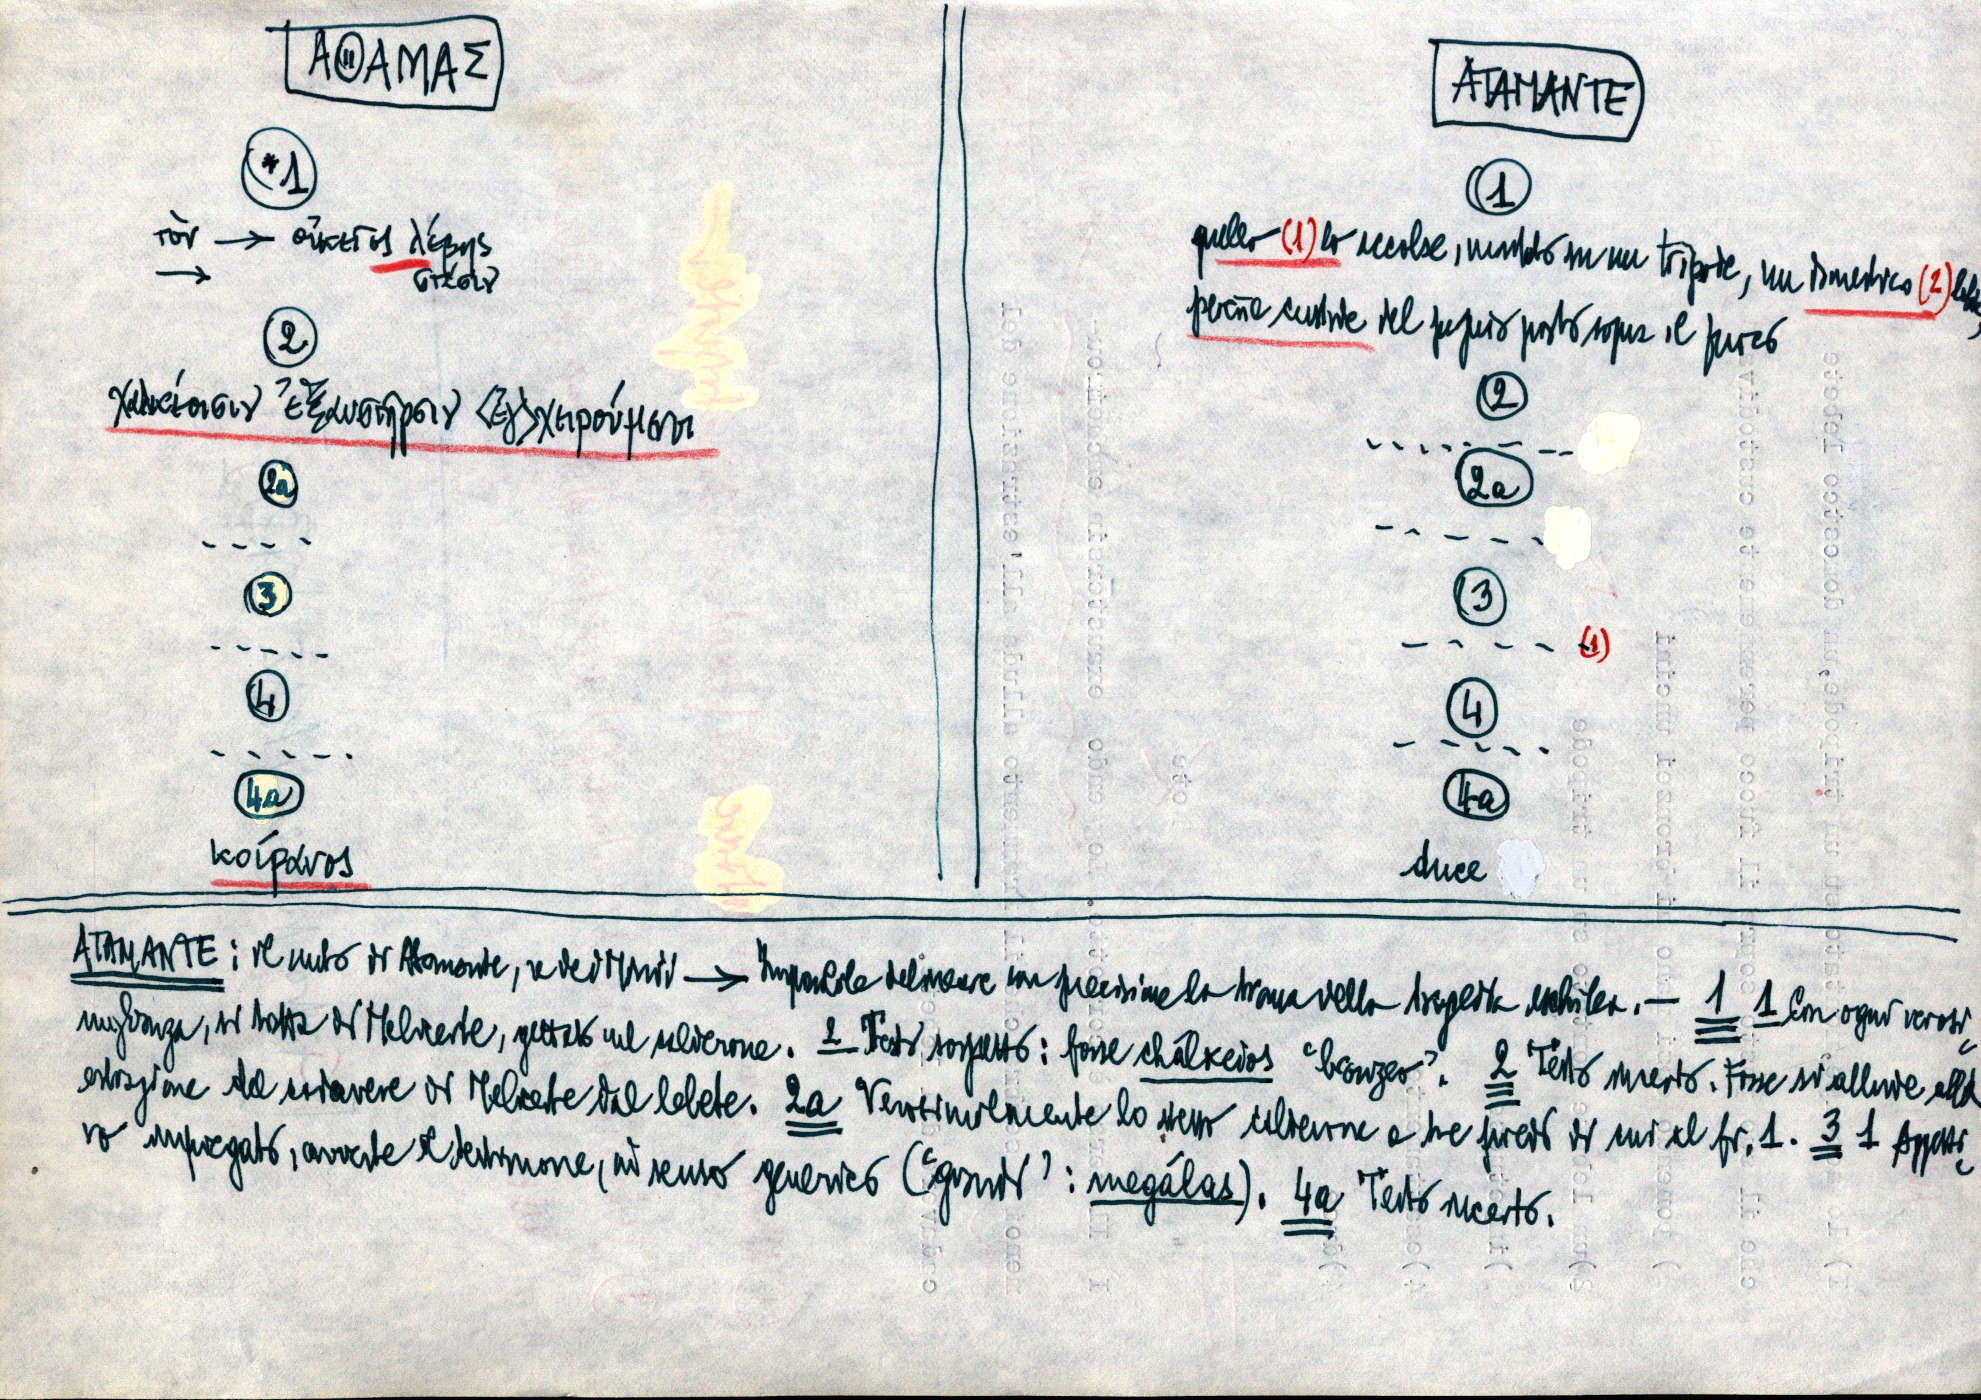 ΑΘΑΜΑΣ
*1
τὸν → οἰκεῖος λέβης
→ στέσιν
2
χαλκέοισιν ἐξαυστῆρσιν <ἐγ>χειρούμενοι
2a
3
4
4a
κοίρανος
ATAMANTE
1
quello (1) lo accolse, mutato in un tripode, un domestico (2)
perenne custode del posto sopra il fuoco
2
2a
3
(1)
4
4a
duce
ATAMANTE: il mito di Atamante, re dei → Impossibile delineare con precisione la trama della tragedia eschilea. — 1 1 Con ogni verosi
miglianza, si tratta di Melicerte, gettato nel calderone. 2 Testo sospetto: forse chálkeios "bronzeo". 2 Testo incerto. Forse si allude alla
estrazione del cadavere di Melicerte dal lebete. 2a Verosimilmente lo stesso calderone a tre piedi di cui al fr. 1. 3 1 Aggetti
vo impiegato, avverte il testimone, in senso generico ("grandi": megálas). 4a Testo incerto.